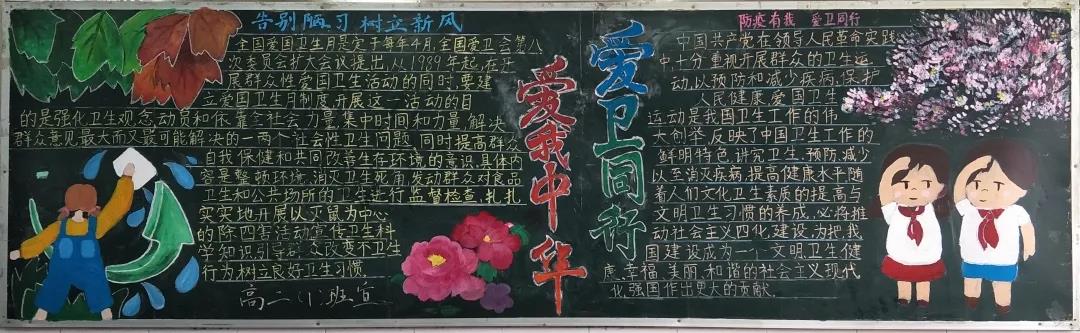 告别陋习 树立新风
全国爱国卫生月是定于每年4月,全国爱卫会第八
次委员会扩大会议提出,从1989年起,在开
展群众性爱国卫生活动的同时,要建
立爱国卫生月制度,开展这一活动的目
的是强化卫生观念,动员和依靠全社会力量,集中时间和力量,解决
群众意见最大而又最可能解决的一两个社会性卫生问题,同时提高群众
自我保健和共同改善生存环境的意识,具体内
容是整顿环境,消灭卫生死角,发动群众对食品
卫生和公共场所的卫生进行监督检查,扎扎
实实地开展以灭鼠为中心
的除四害活动,宣传卫生科
学知识,引导群众改变不卫生
行为,树立良好卫生习惯
高二(1)班宣
爱我中华
爱卫同行
防疫有我 爱卫同行
中国共产党在领导人民革命实践
中,十分重视开展群众的卫生运
动,以预防和减少疾病,保护
人民健康,爱国卫生
运动是我国卫生工作的伟
大创举,反映了中国卫生工作的
鲜明特色,讲究卫生、预防、减少
以至消灭疾病,提高健康水平,随
着人们文化卫生素质的提高与
文明卫生习惯的养成,必将推
动社会主义四化建设,为把我
国建设成为一个文明、卫生、健
康、幸福、美丽、和谐的社会主义现代
化强国作出更大的贡献.